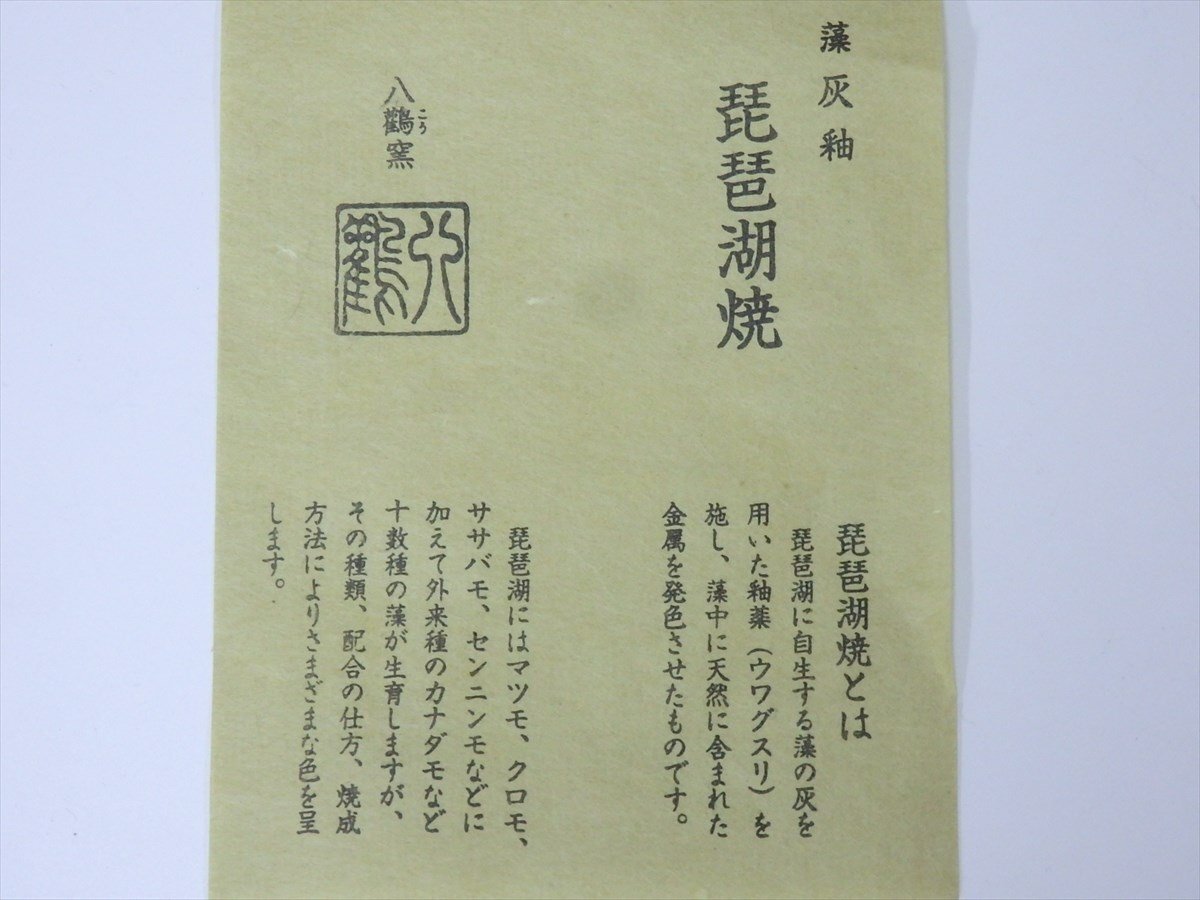 藻灰釉
琵琶湖焼
琵琶湖焼とは
琵琶湖に自生する藻の灰を
用いた釉薬（ウワグスリ）を
施し、藻中に天然に含まれた
金属を発色させたものです。
琵琶湖にはマツモ、クロモ、
ササバモ、センニンモなどに
加えて外来種のカナダモなど
十数種の藻が生育しますが、
その種類、配合の仕方、焼成
方法によりさまざまな色を呈
します。
八鸛窯
こう
八鸛